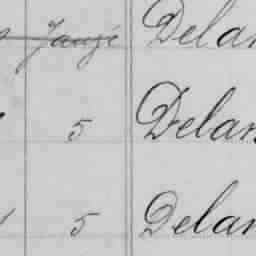 Janzé Delan
5 Delan
5 Delan